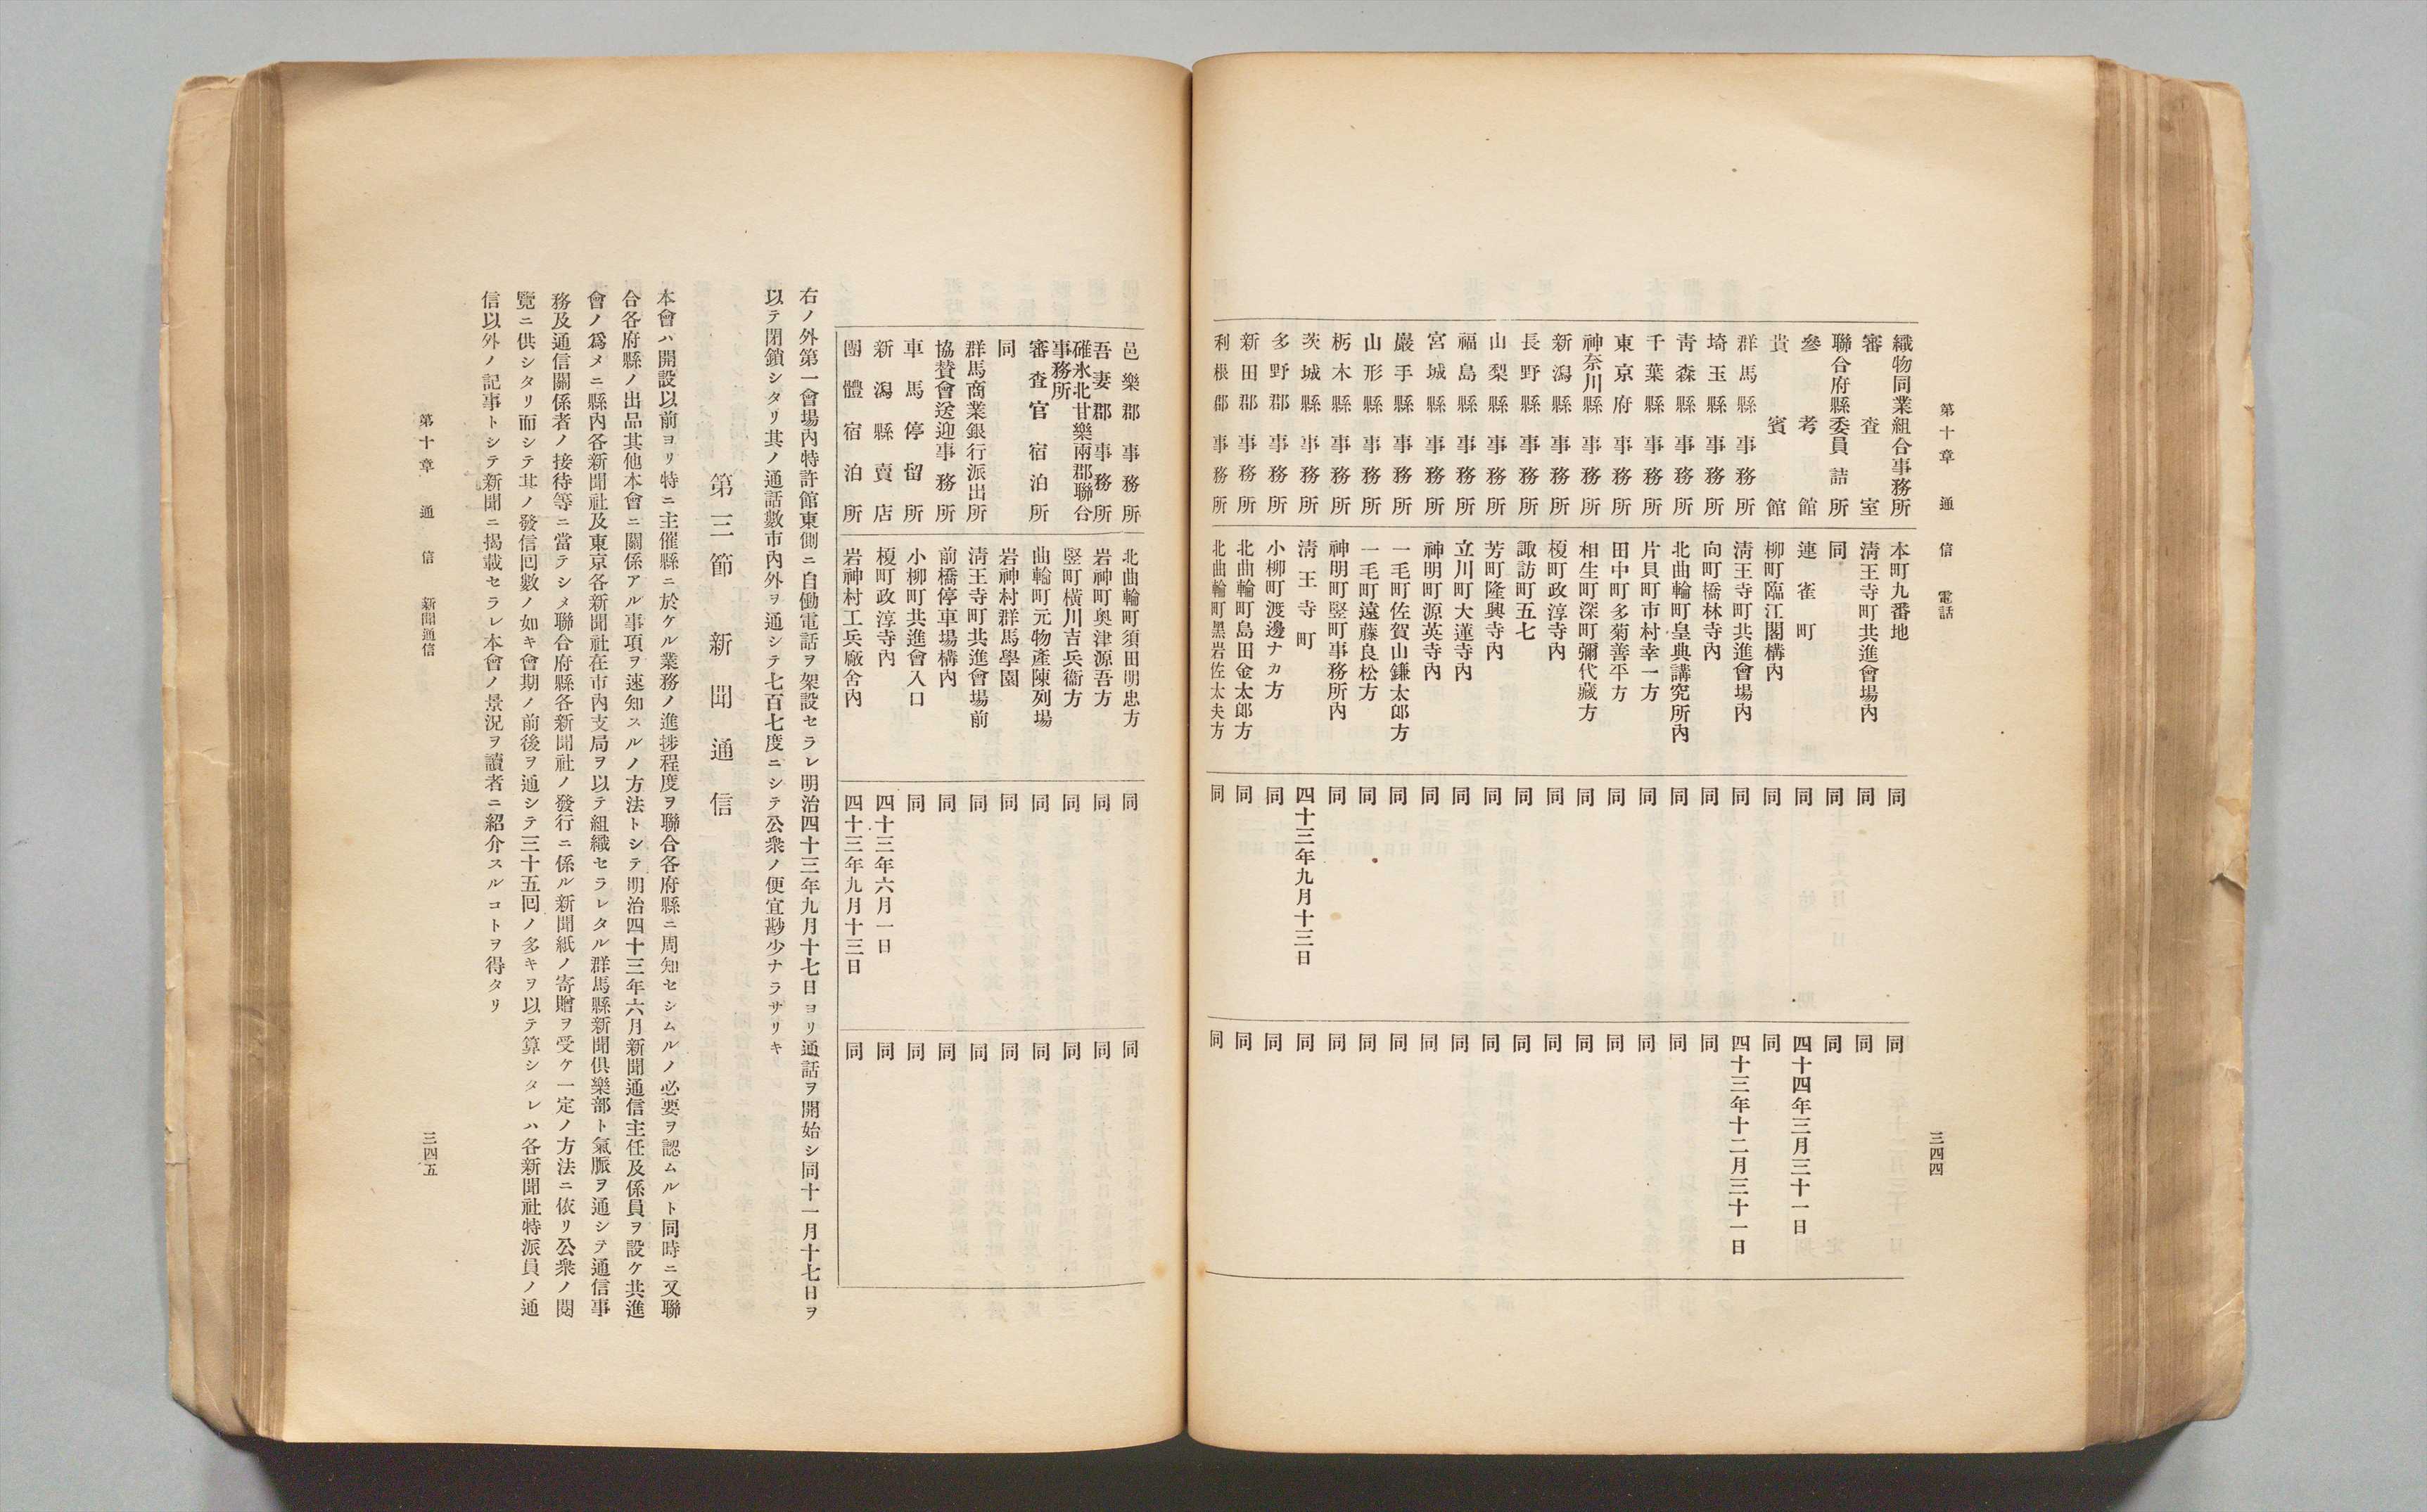 第十章　通信　電話
三四四
織物同業組合事務所　本町九番地　同　同
審査室　淸王寺町共進會場內　同　同
聯合府縣委員詰所　同　同　同
參考館　連雀町　同　四十四年三月三十一日
貴賓館　柳町臨江閣構內　同　同
群馬縣事務所　淸王寺町共進會場內　同　四十三年十二月三十一日
埼玉縣事務所　向町橋林寺內　同　同
靑森縣事務所　北曲輪町皇典講究所內　同　同
千葉縣事務所　片貝町市村幸一方　同　同
東京府事務所　田中町多菊善平方　同　同
神奈川縣事務所　相生町深町彌代藏方　同　同
新潟縣事務所　榎町政淳寺內　同　同
長野縣事務所　諏訪町五七　同　同
山梨縣事務所　芳町隆興寺內　同　同
福島縣事務所　立川町大蓮寺內　同　同
宮城縣事務所　神明町源英寺內　同　同
巖手縣事務所　一毛町佐賀山鎌太郎方　同　同
山形縣事務所　一毛町遠藤良松方　同　同
栃木縣事務所　神明町竪町事務所內　同　同
茨城縣事務所　淸王寺町　四十三年九月十三日　同
多野郡事務所　小柳町渡邊ナカ方　同　同
新田郡事務所　北曲輪町島田金太郎方　同　同
利根郡事務所　北曲輪町黑岩佐太夫方　同　同
邑樂郡事務所　北曲輪町須田明忠方　同　同
吾妻郡事務所　岩神町奧津源吾方　同　同
碓氷北甘樂兩郡聯合事務所　竪町橫川吉兵衞方　同　同
審査官宿泊所　曲輪町元物產陳列場　同　同
同　岩神村群馬學園　同　同
群馬商業銀行派出所　淸王寺町共進會場前　同　同
協贊會送迎事務所　前橋停車場構內　同　同
車馬停留所　小柳町共進會入口　同　同
新潟縣賣店　榎町政淳寺內　四十三年六月一日　同
團體宿泊所　岩神村工兵廠舍內　四十三年九月十三日　同
右ノ外第一會場內特許館東側ニ自働電話ヲ架設セラレ明治四十三年九月十七日ヨリ通話ヲ開始シ同十一月十七日ヲ
以テ閉鎖シタリ其ノ通話數市內外ヲ通シテ七百七度ニシテ公衆ノ便宜尠少ナラサリキ
第三節　新聞通信
本會ハ開設以前ヨリ特ニ主催縣ニ於ケル業務ノ進捗程度ヲ聯合各府縣ニ周知セシムルノ必要ヲ認ムルト同時ニ又聯
合各府縣ノ出品其他本會ニ關係アル事項ヲ速知スルノ方法トシテ明治四十三年六月新聞通信主任及係員ヲ設ケ共進
會ノ爲メニ縣內各新聞社及東京各新聞社在市內支局ヲ以テ組織セラレタル群馬縣新聞俱樂部ト氣脈ヲ通シテ通信事
務及通信關係者ノ接待等ニ當テシメ聯合府縣各新聞社ノ發行ニ係ル新聞紙ノ寄贈ヲ受ケ一定ノ方法ニ依リ公衆ノ閱
覽ニ供シタリ而シテ其ノ發信回數ノ如キ會期ノ前後ヲ通シテ三十五回ノ多キヲ以テ算シタレハ各新聞社特派員ノ通
信以外ノ記事トシテ新聞ニ揭載セラレ本會ノ景況ヲ讀者ニ紹介スルコトヲ得タリ
第十章　通信　新聞通信
三四五